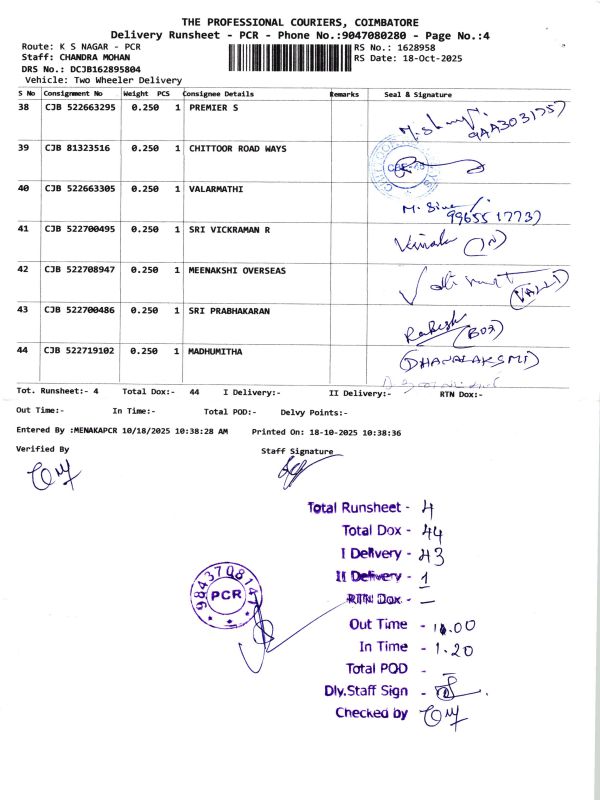 THE PROFESSIONAL COURIERS, COIMBATORE
Delivery Runsheet - PCR - Phone No.:9047080280 - Page No.:4
Route: K S NAGAR - PCR RS No.: 1628958
Staff: CHANDRA MOHAN RS Date: 18-Oct-2025
DRS No.: DCJB162895804
Vehicle: Two Wheeler Delivery
S No Consignment No Weight PCS Consignee Details Remarks Seal & Signature
38 CJB 522663295 0.250 1 PREMIER S
39 CJB 81323516 0.250 1 CHITTOOR ROAD WAYS
40 CJB 522663305 0.250 1 VALARMATHI
9965517737
41 CJB 522700495 0.250 1 SRI VICKRAMAN R
42 CJB 522708947 0.250 1 MEENAKSHI OVERSEAS
(VALLI)
43 CJB 522700486 0.250 1 SRI PRABHAKARAN
Rakesh
44 CJB 522719102 0.250 1 MADHUMITHA (DHANALAKSMI)
Tot. Runsheet:- 4 Total Dox:- 44 I Delivery:- II Delivery:- RTN Dox:-
Out Time:- In Time:- Total POD:- Delvy Points:-
Entered By :MENAKAPCR 10/18/2025 10:38:28 AM Printed On: 18-10-2025 10:38:36
Verified By Staff Signature
Total Runsheet - 4
Total Dox - 44
I Delivery - 43
II Delivery - 1
RTN Dox - —
Out Time - 11.00
In Time - 1.20
Total POD - —
Dly.Staff Sign -
Checked by
9843708147
PCR